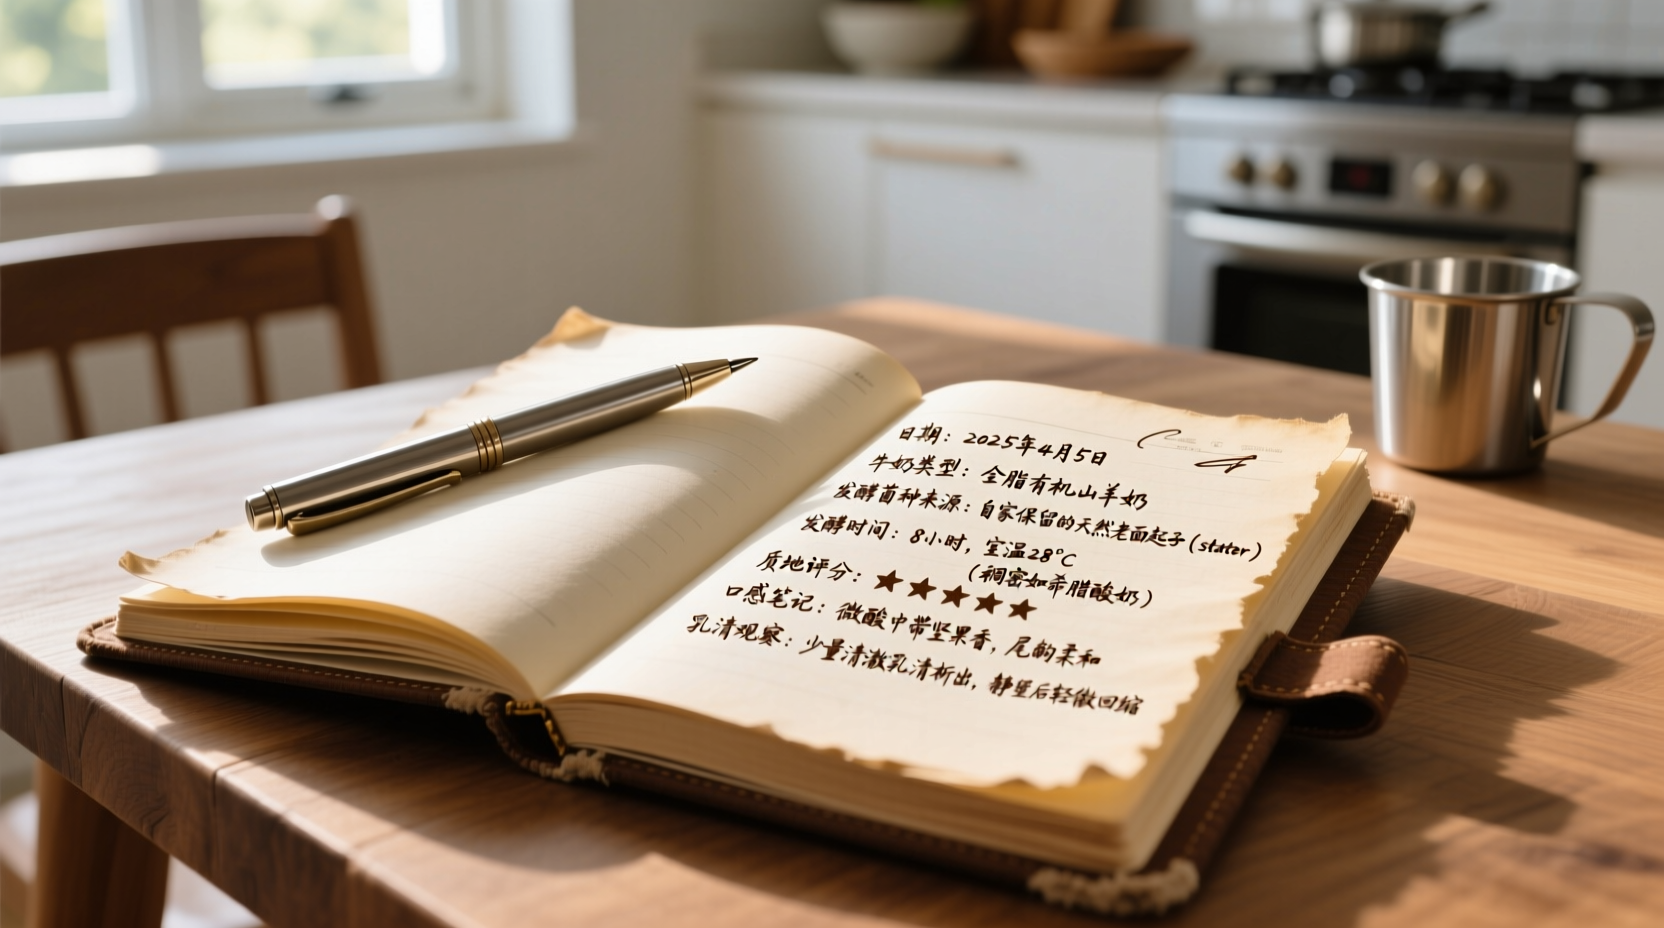 日期：2025年4月5日
牛奶类型：全脂有机山羊奶
发酵菌种来源：自家保留的天然老面起子(stater)
发酵时间：8小时，室温28°C
(稠密如希腊酸奶)
质地评分：★★★★★
口感笔记：微酸中带坚果香，尾韵柔和
乳清观察：少量清澈乳清析出，静置后轻微回缩